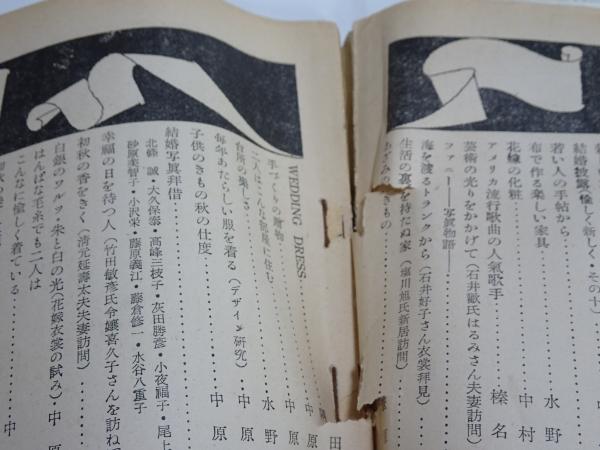 結婚披露・愉しく新しく・その十）
若い人の手帖から…………水野
布で作る楽しい家具…………中村
花嫁の化粧…………
アメリカ流行歌曲の人氣歌手…………榛名
藝術の光りをかかげて（石井歓氏はるみさん夫妻訪問）
ファニー——写眞物語——…………
海を渡るトランクから（石井好子さん衣裳拜見）…………
生活の裏を持たぬ家（塩川旭氏新居訪問）…………
WEDDING DRESS…………
手づくりの贈物…………中
二人はこんな部屋に住む…………中原
台所の楽しさ…………水野
毎年あたらしい服を着る（デザイン研究）…………中原
子供のきもの秋の仕度…………中原
結婚写眞拜借…………
北條誠・大久保泰・高峰三枝子・灰田勝彦・小夜福子・尾上
砂原美智子・小沢栄・藤原義江・藤倉修一・水谷八重子
幸福の日を待つ人（竹田敏彦氏令嬢喜久子さんを訪ね
初秋の香をきく（清元延壽太夫夫妻訪問）…………
白銀のワルツ・朱と白の光（花嫁衣裳の試み）・中原
はんぱな毛糸でも二人は
こんなに愉しく着ている…………中